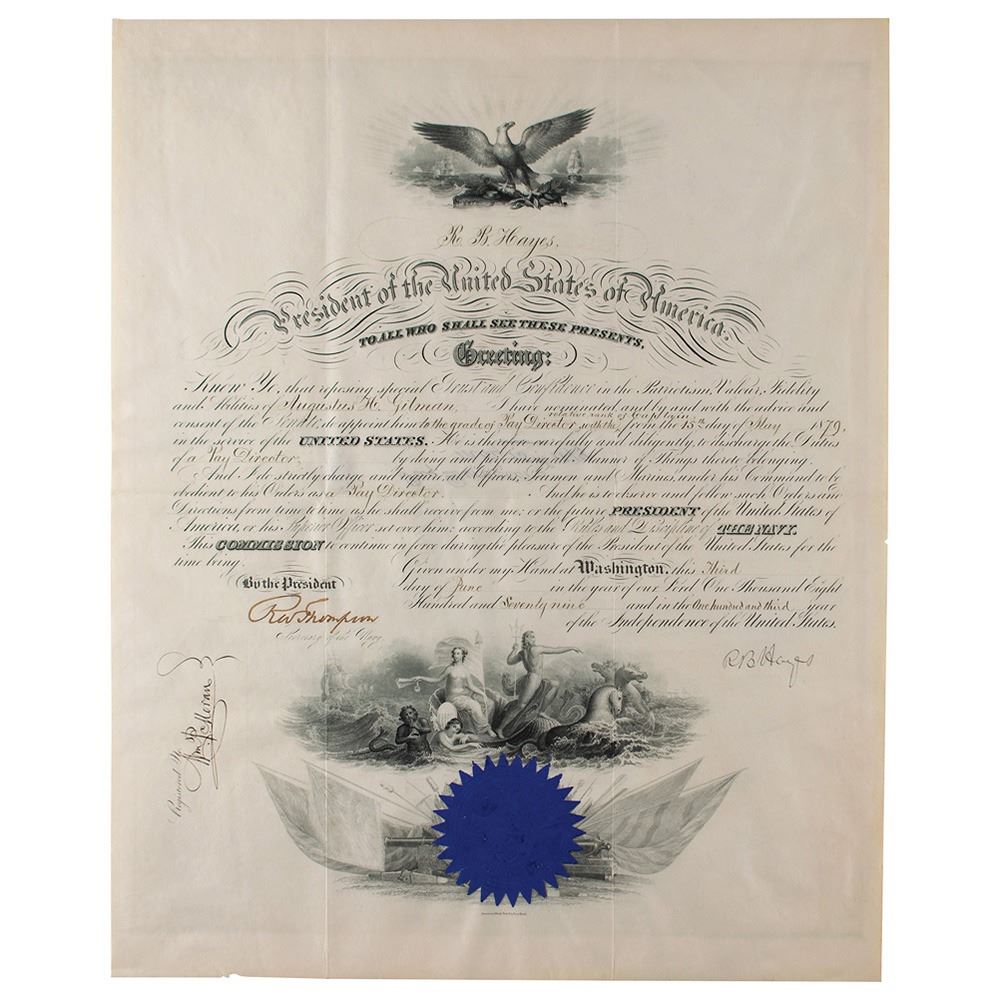 R. B. Hayes,
President of the United States of America.
TO ALL WHO SHALL SEE THESE PRESENTS,
Greeting:
Know Ye, that reposing special Trust and Confidence in the Patriotism, Valour, Fidelity
and Abilities of Augustus H. Gilman, I have nominated and by and with the advice and
relative rank of
consent of the Senate, do appoint him to the grade of Pay Director, with the from the 15th day of May 1879,
in the service of the UNITED STATES. He is therefore carefully and diligently to discharge the Duties
of a Pay Director, by doing and performing all Manner of Things thereto belonging.
And I do strictly charge, and require, all Officers, Seamen and Marines, under his Command to be
obedient to his Orders as a Pay Director. And he is to observe and follow such Orders and
Directions from time to time as he shall receive from me, or the future PRESIDENT of the United States of
America, or his Superior Officer set over him, according to the Rules and Discipline of THE NAVY.
This COMMISSION to continue in force during the pleasure of the President of the United States for the
time being.
Given under my Hand at Washington, this Third
day of June in the year of our Lord, One Thousand Eight
Hundred and Seventy nine and in the One hundred and third year
of the Independence of the United States.
By the President
R W Thompson
Secretary of the Navy.
R B Hayes
Registered No
Wm P Moran